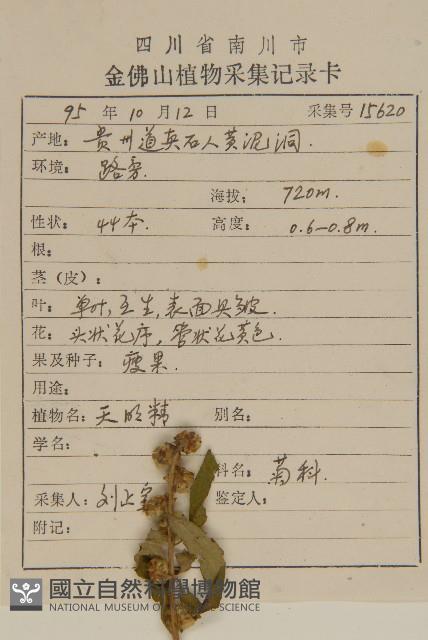 四川省南川市
金佛山植物采集记录卡
95 年 10 月 12 日 采集号 15620
产地: 贵州道真石人黄泥洞.
环境: 路旁.
海拔: 720m.
性状: 44本. 高度: 0.6-0.8m.
根:
茎(皮):
叶: 单叶,互生,表面具皱.
花: 头状花序,管状花黄色.
果及种子: 瘦果.
用途:
植物名: 天名精 别名:
学名:
科名: 菊科.
采集人: 刘正宇 鉴定人:
附记:
國立自然科學博物館
NATIONAL MUSEUM OF NATURAL SCIENCE